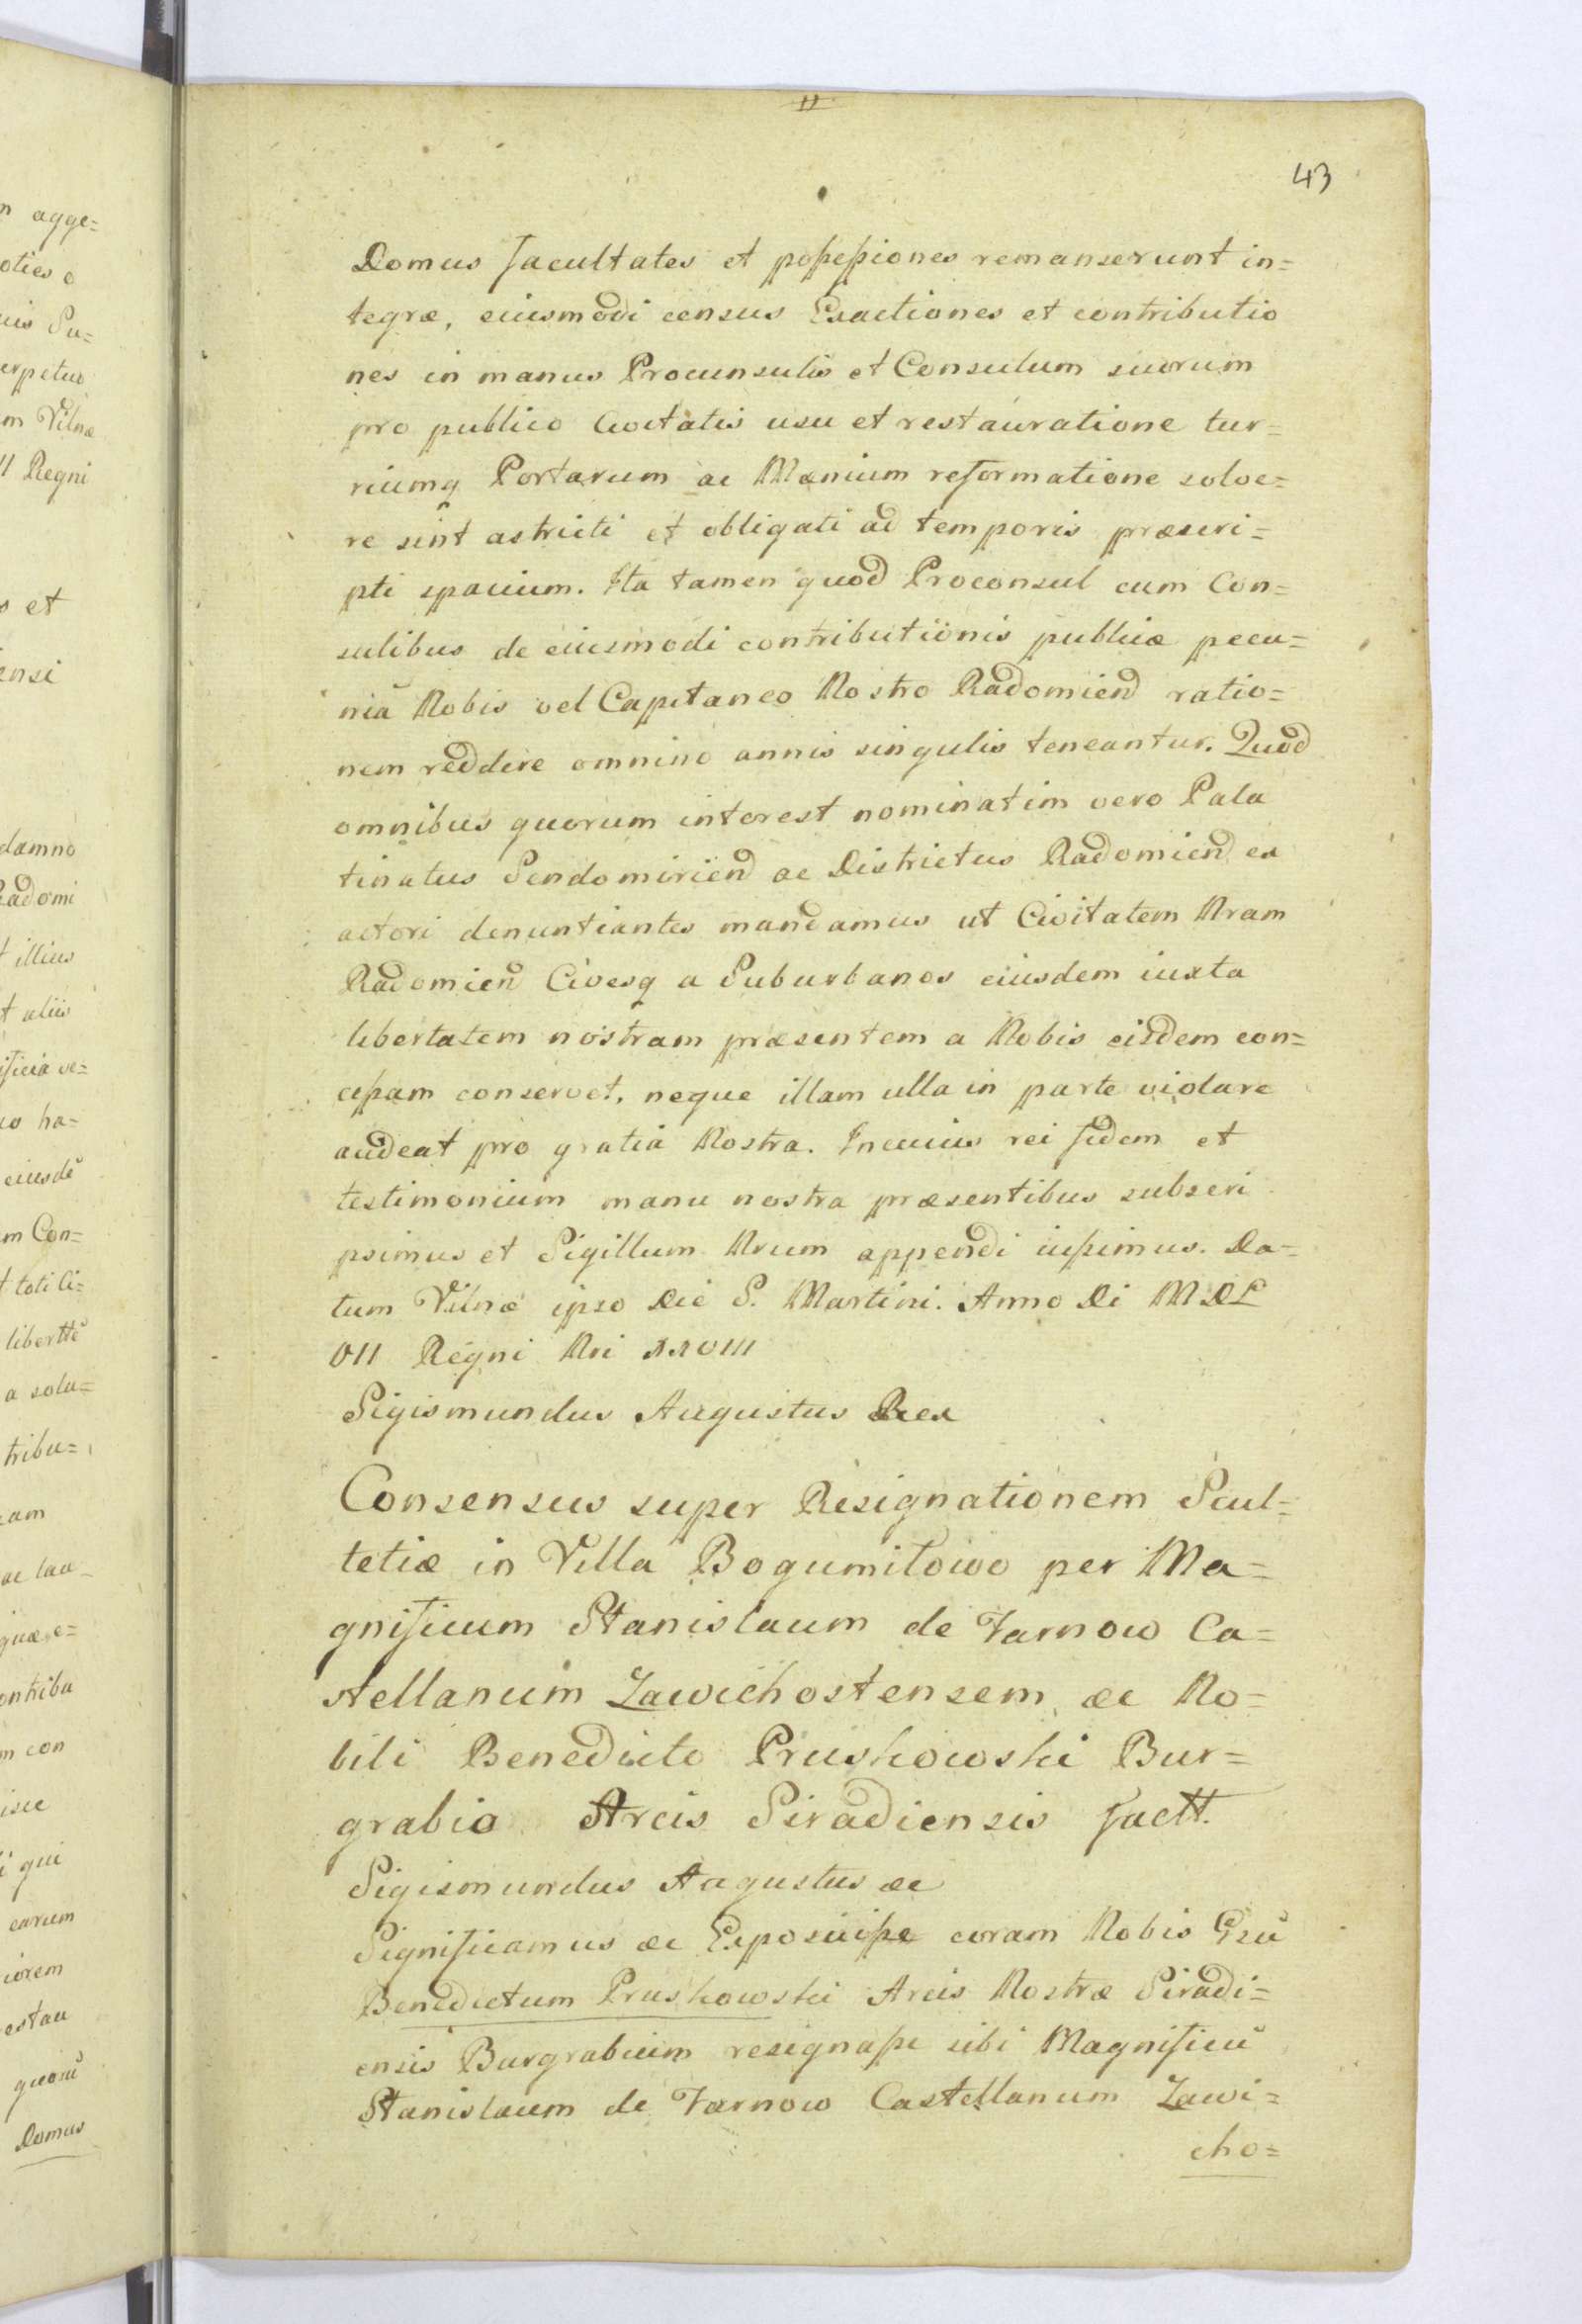 43
Domus facultates et possessiones remanserunt in=
tegræ, eiusmodi census Exactiones et contributio
nes in manus Proconsulis et Consulum suorum
pro publico Civitatis usu et restauratione tur=
riumq Portarum ac Mœnium reformatione solve=
re sint astricti et obligati ad temporis præscri=
pti spacium. Ita tamen quod Proconsul cum Con=
sulibus de eiusmodi contributionis publicæ pecu=
nia Nobis vel Capitaneo Nostro Radomień ratio=
nem reddere omnino annis singulis teneantur. Quod
omnibus quorum interest nominatim vero Pala
tinatus Sendomirień ac Districtus Radomień ex
actori denuntiantes mandamus ut Civitatem Nram
Radomień Civesq a Suburbanos eiusdem iuxta
libertatem nostram præsentem a Nobis eisdem con=
cessam conservet, neque illam ulla in parte violare
audeat pro gratia Nostra. In cuius rei fidem et
testimonium manu nostra præsentibus subscri
psimus et Sigillum Nrum appendi iussimus. Da=
tum Vilnæ ipso Die S. Martini. Anno Di MDL
VII Regni Nri XXVIII
Sigismundus Augustus Rex
Consensus super Resignationem Scul=
tetiæ in Villa Bogumiłowo per Ma=
gnificum Stanislaum de Tarnow Ca=
stellanum Zawichostensem ac No=
bili Benedicto Pruskowski Bur=
grabio Arcis Siradiensis factt.
Sigismundus Augustus &c
Significamus &c Exposuisse coram Nobis Gsū
Benedictum Pruskowski Arcis Nostræ Siradi=
ensis Burgrabium resignasse sibi Magnificū
Stanislaum de Tarnow Castellanum Zawi=
cho=